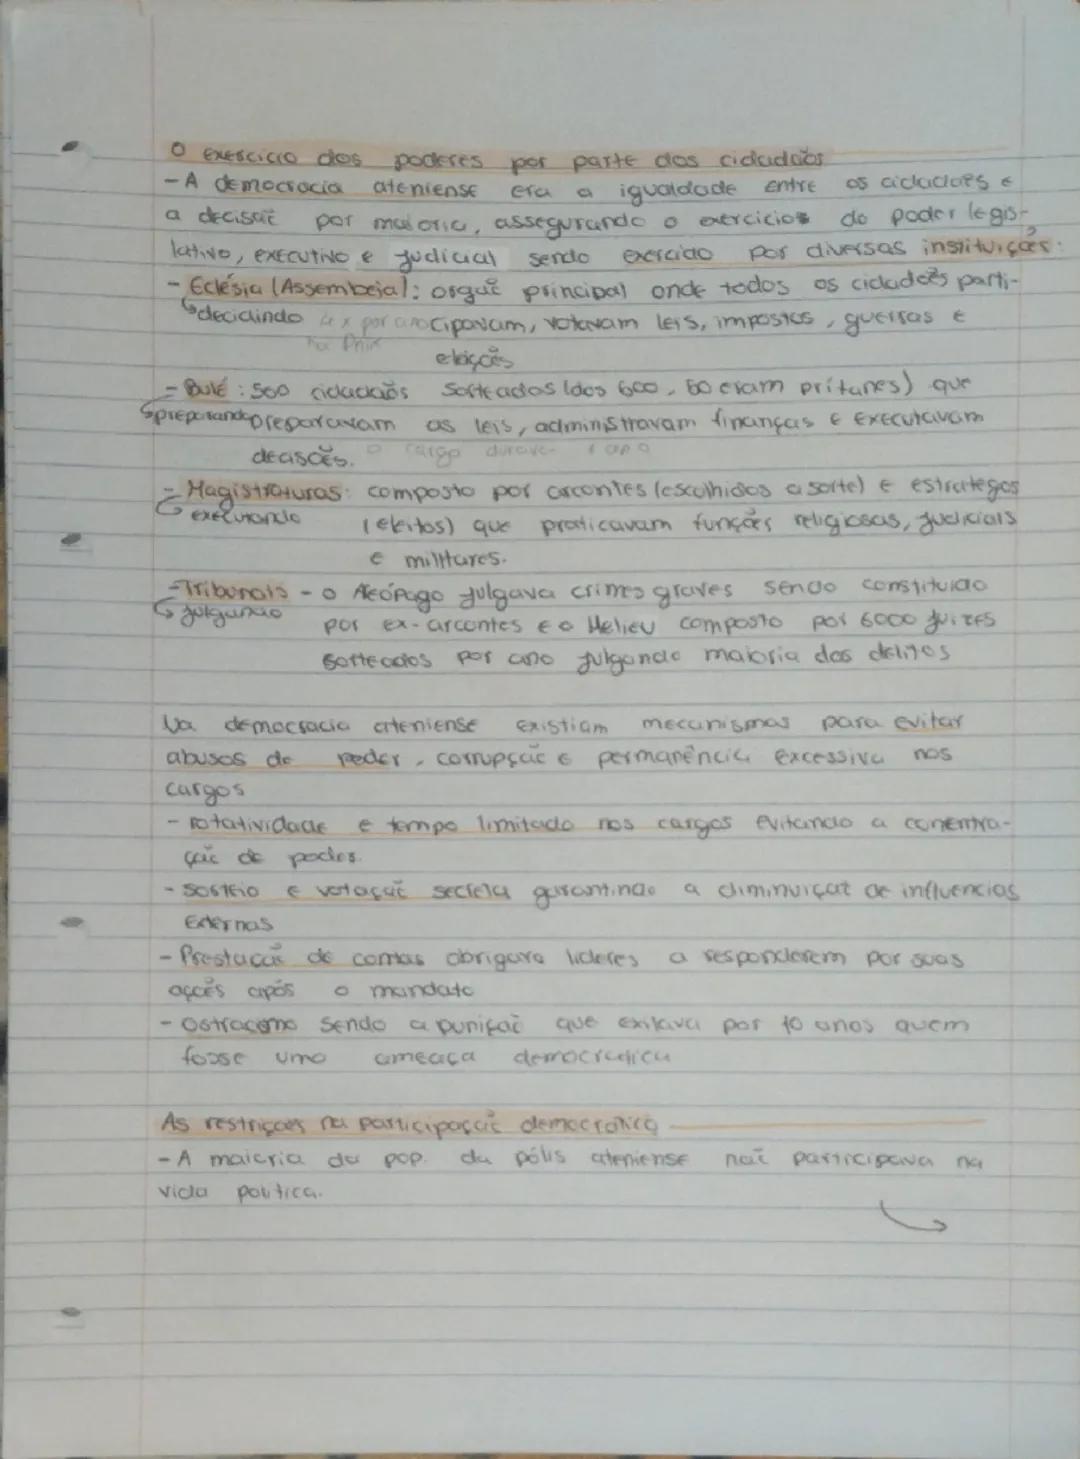 O exercicio dos poderes por parte dos cidadãos
- A democracia ateniense era a igualdade entre os cidadães e
a decisão por maioria, assegurando o exercicios do poder legis-
lativo, executivo e judicial sendo exercido por diversas instituições:
- Eclésia (Assembeia): orgão principal onde todos os cidadões parti-
↳decidindo 4x por ano cipavam, votavam leis, impostos, guerras e
na Pnix
eleições
- Bulé: 500 cidadãos sorteados (dos 600, 50 eram prítanes) que
↳preparando preparavam as leis, administravam finanças e executavam
decisões. o cargo durava 1 ano
- Magistraturas: composto por arcontes (escolhidos a sorte) e estrategos
↳ executando (eleitos) que praticavam funções religiosas, judiciais
e militares.
- Tribunais - o Aeópago julgava crimes graves sendo constituido
↳ julgando por ex-arcontes e o Helieu composto por 6000 juizes
sorteados por ano julgando maioria dos delitos
Na democracia ateniense existiam mecanismos para evitar
abusos de poder, corrupção e permanência excessiva nos
cargos
- rotatividade e tempo limitado nos cargos evitando a conentra-
ção de poder.
- sorteio e votação secreta garantindo a diminuição de influencias
externas
- Prestação de contas obrigava lideres a responderem por suas
ações após o mandato
- Ostracomo sendo a punição que exilava por 10 anos quem
fosse uma ameaça democratica
As restriçoes na participação democrática
- A maioria da pop. da pólis ateniense não participava na
vida politica.